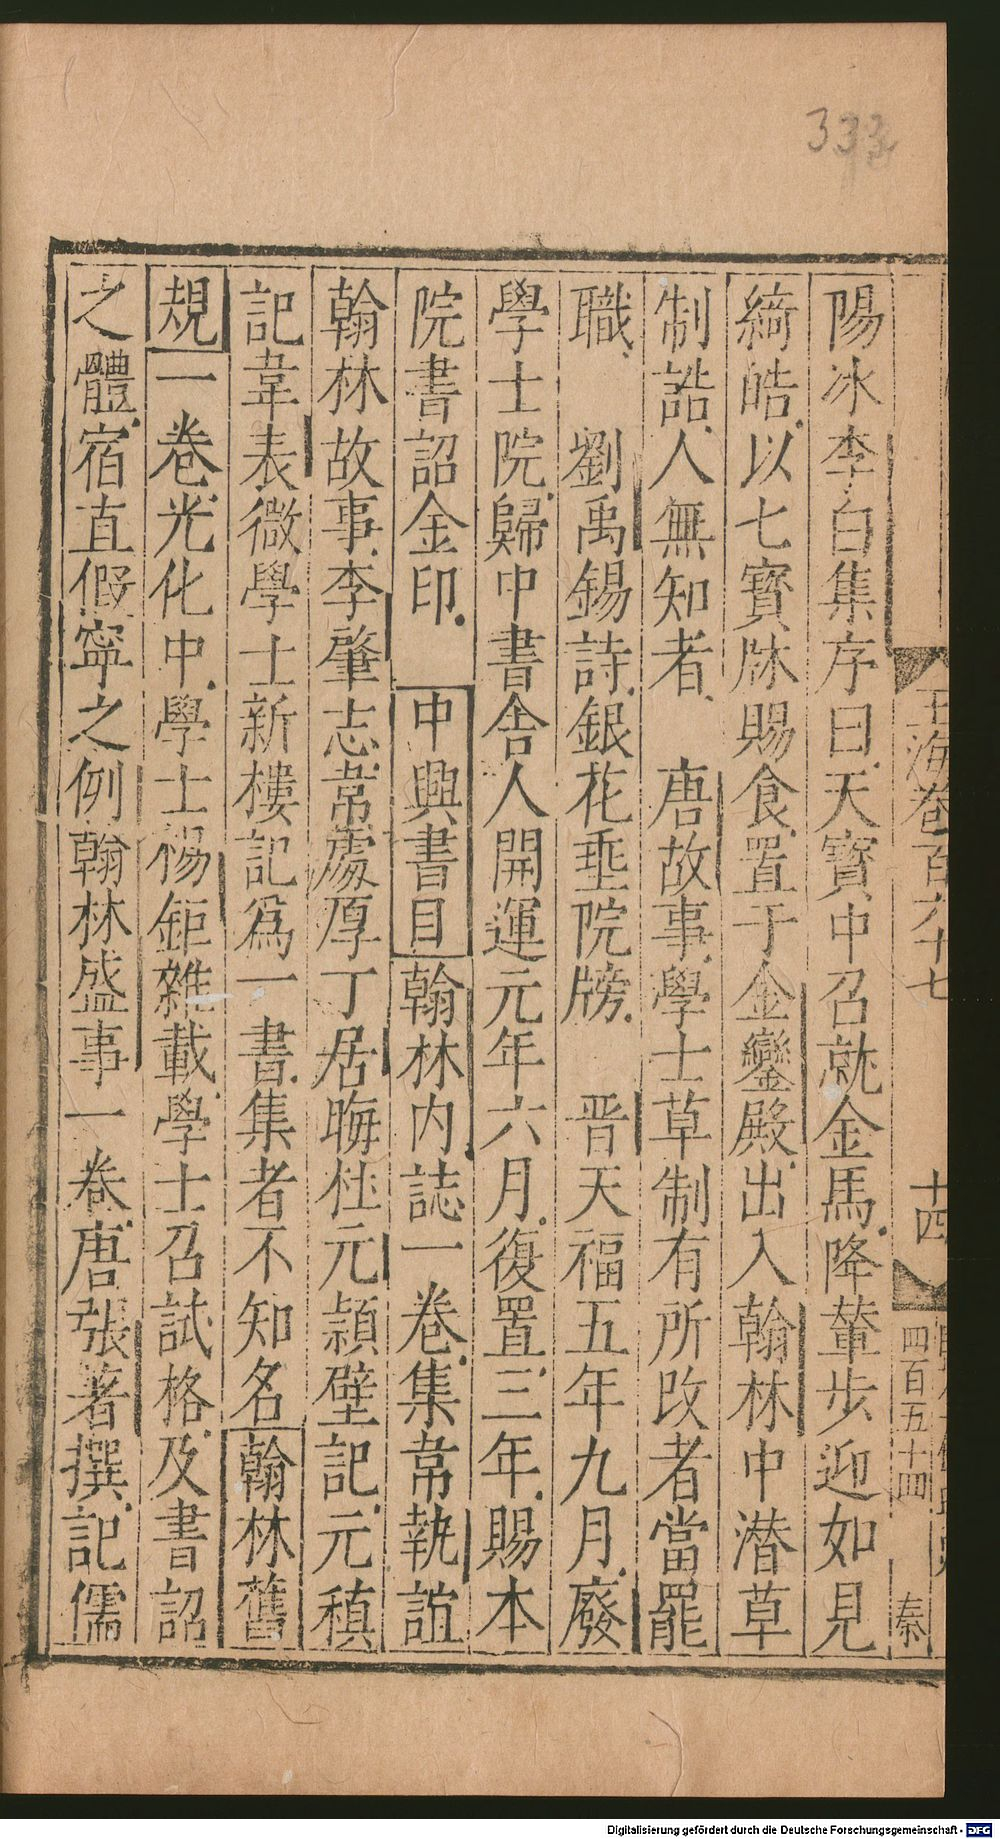 333
玉海卷百六十七
十四
四百五十四
秦
陽冰李白集序曰天寶中召就金馬降輦步迎如見
綺皓以七寶牀賜食置于金鑾殿出入翰林中潜草
制誥人無知者 唐故事學士草制有所改者當罷
職 劉禹錫詩銀花垂院牓 晋天福五年九月廢
學士院歸中書舎人開運元年六月復置三年賜本
院書詔金印 中興書目翰林内誌一卷集韋執誼
翰林故事李肇志韋處厚丁居晦杜元頴壁記元稹
記韋表微學士新樓記爲一書集者不知名翰林舊
規一卷光化中學士楊鉅雜載學士召試格及書詔
之體宿直假寧之例翰林盛事一卷唐張著撰記儒
Digitalisierung gefördert durch die Deutsche Forschungsgemeinschaft - DFG